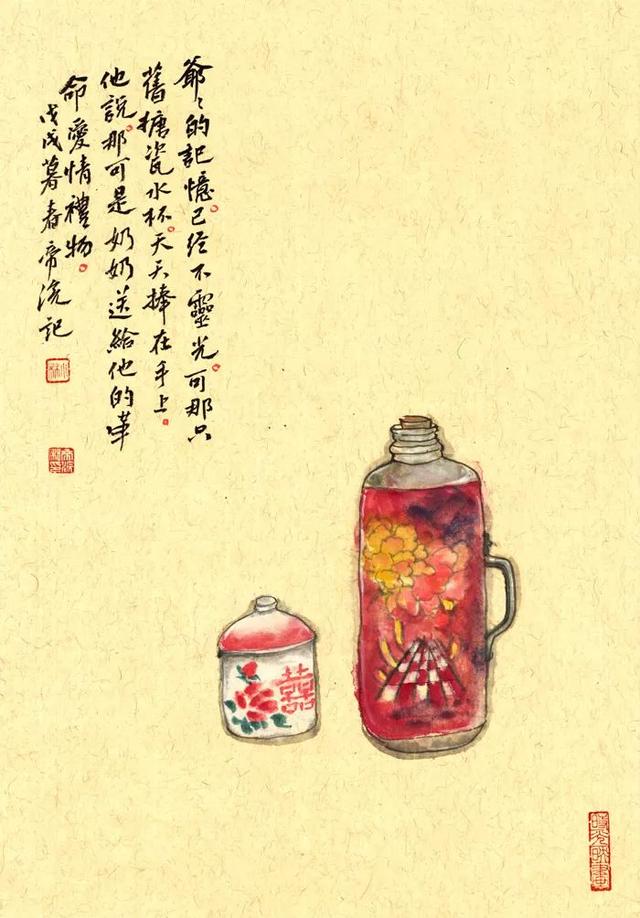 爺〻的記憶已经不靈光。可那只
舊搪瓷水杯。天天捧在手上。
他説。那可是奶奶送給他的革
命愛情禮物。
戊戌暮春帝浣記
囍